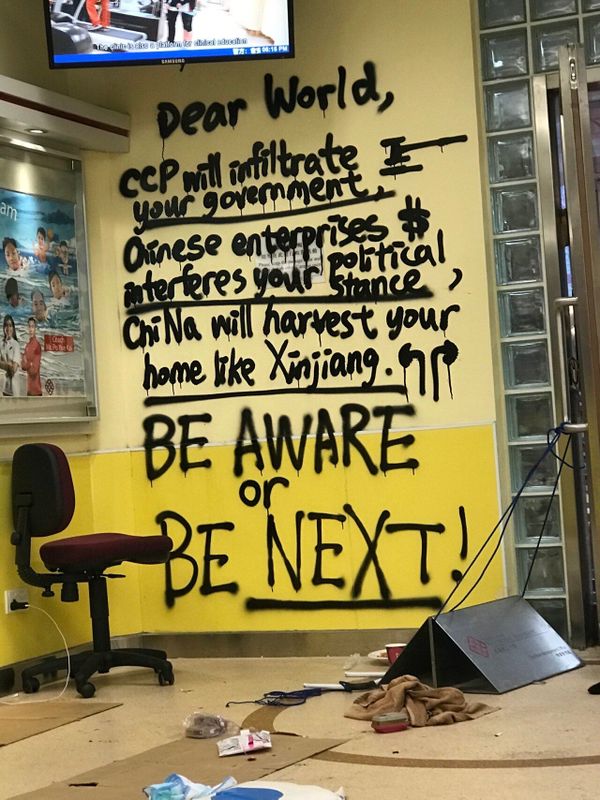 The clinic is also a platform for clinical education
06:16 PM
SAMSUNG
am
Dear World,
CCP will infiltrate
your government,
Chinese enterprises $
interferes your political
stance,
ChiNa will harvest your
home like Xinjiang.
BE AWARE
or
BE NEXT!
Coach